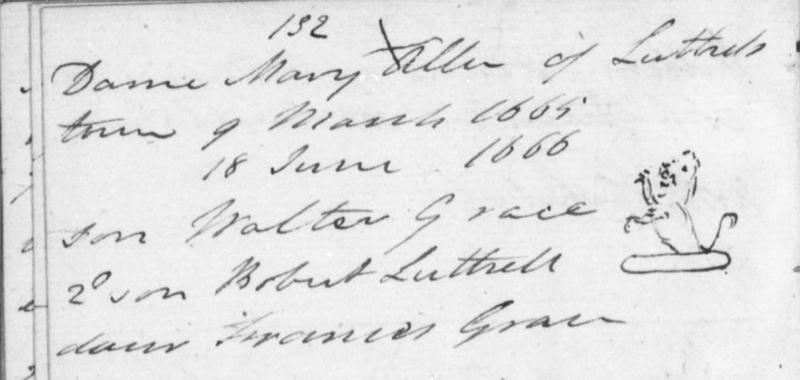 132
Dame Mary Allen of Luttrels
town 9 March 1665
18 June 1666
son Walter Grace
2º son Robert Luttrell
daur Frances Grace